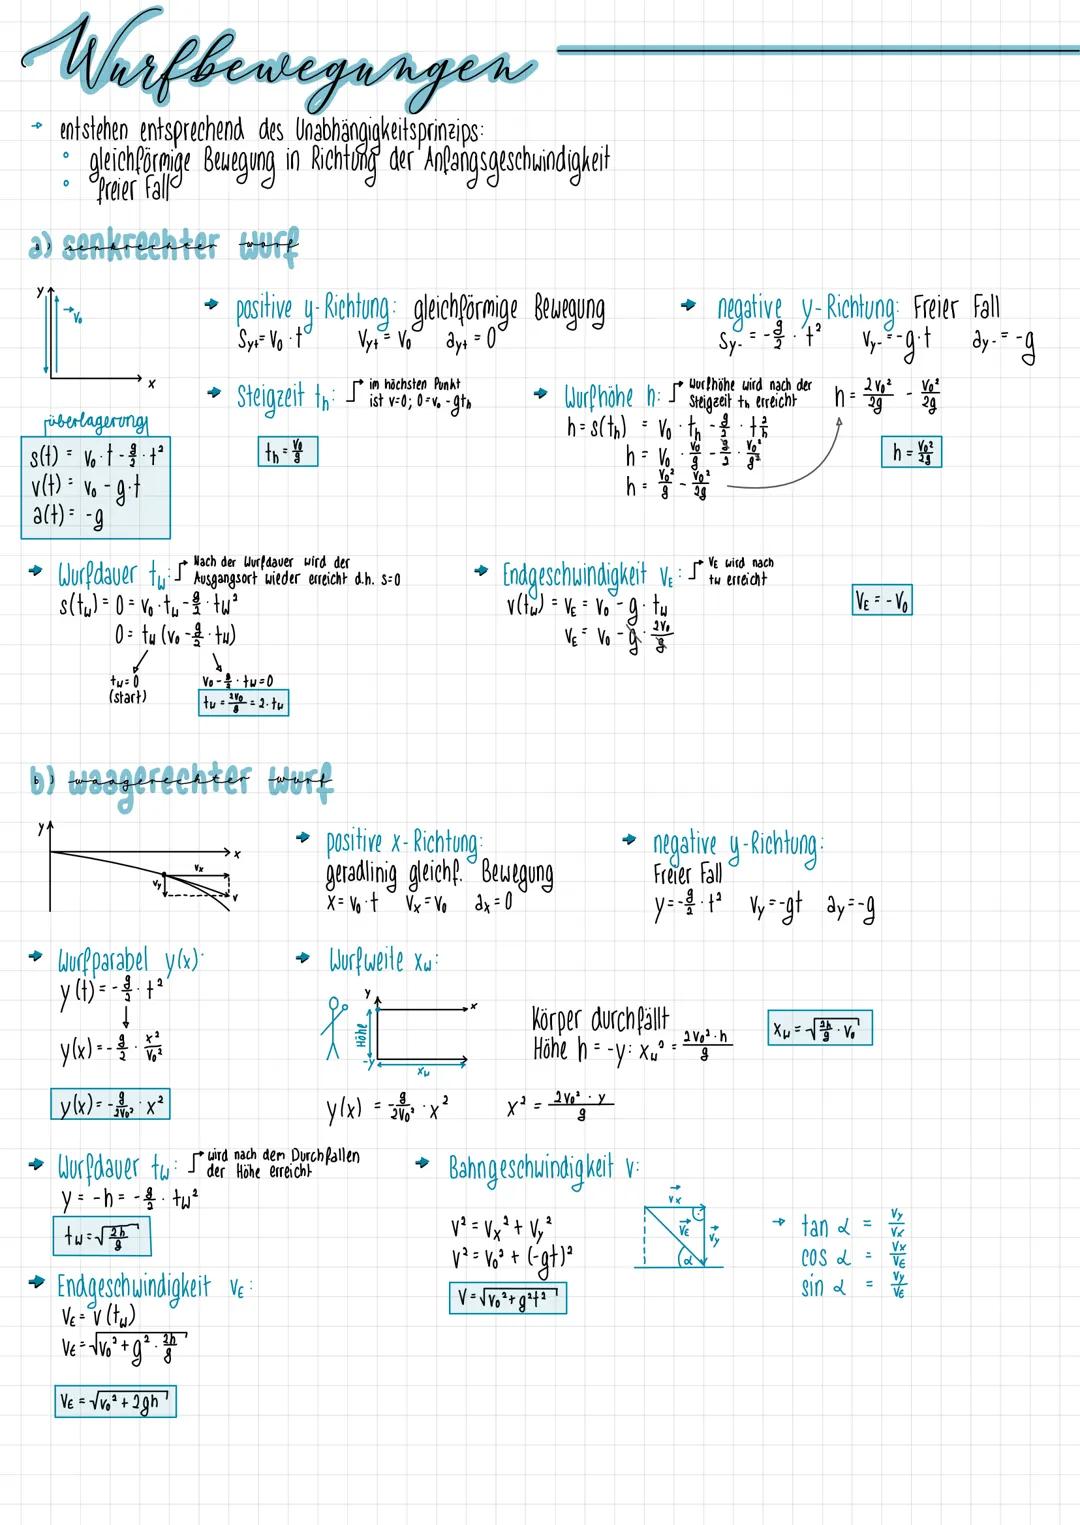 Wurfbewegungen
→ entstehen entsprechend des Unabhängigkeitsprinzips:
∘ gleichförmige Bewegung in Richtung der Anfangsgeschwindigkeit
∘ freier Fall
a) senkrechter wurf
y
v₀
x
→ positive y-Richtung: gleichförmige Bewegung
S_y+ = V₀ · t   V_y+ = V₀   a_y+ = 0
→ negative y-Richtung: Freier Fall
S_y- = -g/2 · t²   V_y- = -g·t   a_y- = -g
Überlagerung
s(t) = V₀ · t - g/2 · t²
v(t) = V₀ - g·t
a(t) = -g
→ Steigzeit t_h: im höchsten Punkt
ist v=0; 0=v₀ - gt_h
t_h = V₀/g
→ Wurfhöhe h: Wurfhöhe wird nach der
Steigzeit t_h erreicht
h = s(t_h) = V₀ · t_h - g/2 · t_h²
h = V₀ · V₀/g - g/2 · V₀²/g²
h = V₀²/g - V₀²/2g
h = 2V₀²/2g - V₀²/2g
h = V₀²/2g
→ Wurfdauer t_w: Nach der Wurfdauer wird der
Ausgangsort wieder erreicht d.h. s=0
s(t_w) = 0 = V₀ · t_w - g/2 · t_w²
0 = t_w (V₀ - g/2 · t_w)
t_w = 0
(start)
V₀ - g/2 · t_w = 0
t_w = 2V₀/g = 2 · t_w
→ Endgeschwindigkeit V_E: V_E wird nach
t_w erreicht
v(t_w) = V_E = V₀ - g · t_w
V_E = V₀ - g · 2V₀/g
V_E = -V₀
b) waagerechter wurf
y
x
v_x
v_y
v
→ positive x-Richtung:
geradlinig gleichf. Bewegung
X = V₀ · t   V_x = V₀   a_x = 0
→ negative y-Richtung:
Freier Fall
y = -g/2 · t²   V_y = -gt   a_y = -g
→ Wurfparabel y(x):
y(t) = -g/2 · t²
y(x) = -g/2 · x²/V₀²
y(x) = -g/2V₀² · x²
→ Wurfweite x_w:
y
x
Höhe
-y
x_w
Körper durchfällt
Höhe h = -y: x_w² = 2V₀² · h/g
x_w = √(2h/g) · V₀
y(x) = -g/2V₀² · x²
x² = 2V₀² · y/g
→ Wurfdauer t_w: wird nach dem Durchfallen
der Höhe erreicht
y = -h = -g/2 · t_w²
t_w = √(2h/g)
→ Bahngeschwindigkeit v:
V² = V_x² + V_y²
V² = V₀² + (-gt)²
V = √(V₀² + g²t²)
v_x
v_E
v_y
α
→ tan α = V_y/V_x
cos α = V_x/V_E
sin α = V_y/V_E
→ Endgeschwindigkeit V_E:
V_E = v(t_w)
V_E = √(V₀² + g² · 2h/g)
V_E = √(V₀² + 2gh)